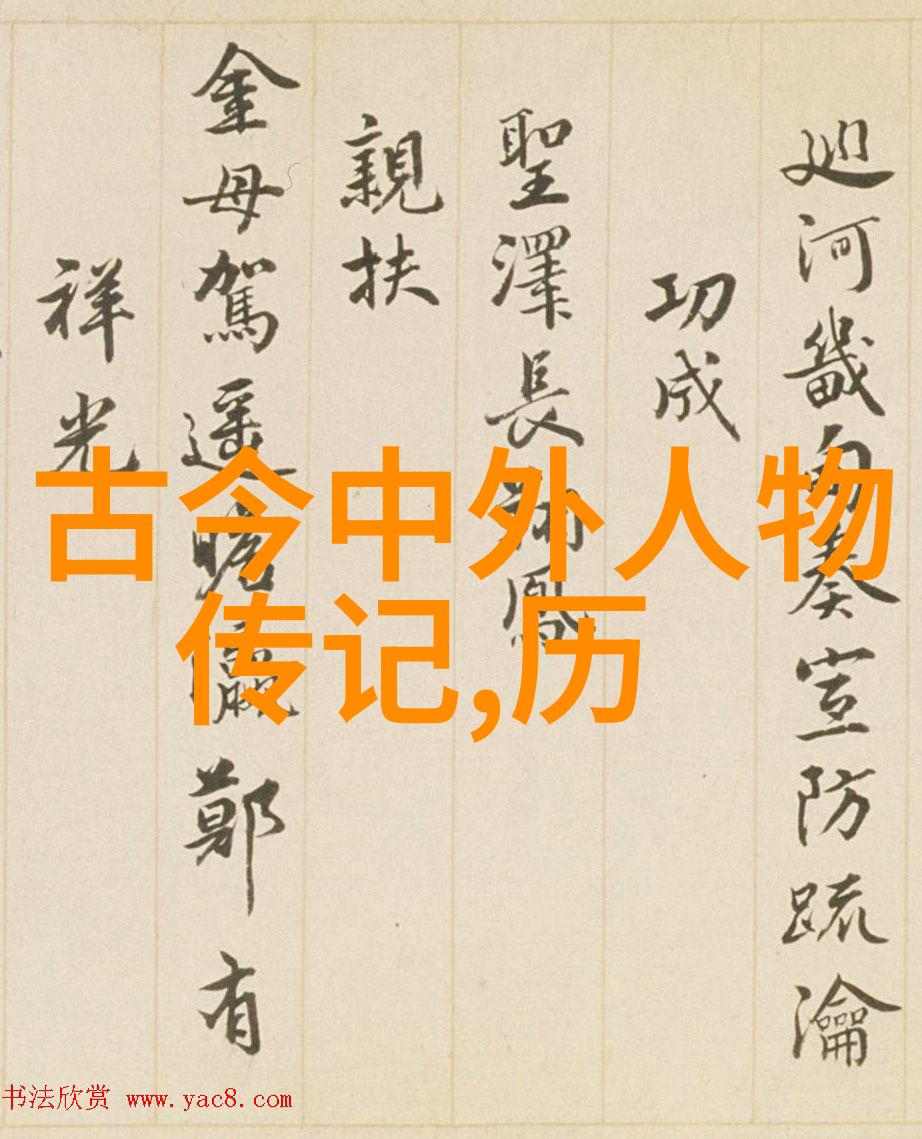 廵河畿甸奏宣防疏瀹
功成
聖澤長鳳
親扶
金母駕遥瞻瀛鄭有
祥光
古今中外人物
传记,历
书法欣赏 www.yac8.com